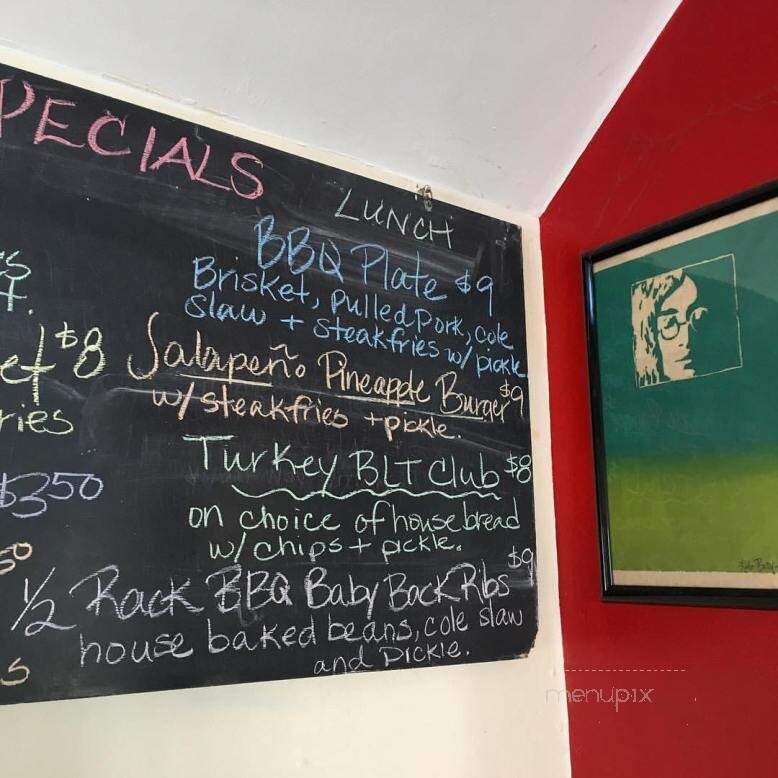 PECIALS
LUNCH
BBQ Plate $9
Brisket, pulled pork, cole
slaw + steakfries w/ pickle
Jalapeño Pineapple Burger $9
w/ steakfries + pickle.
Turkey BLT Club $8
on choice of house bread
w/ chips + pickle.
1/2 Rack BBQ Baby Back Ribs $9
house baked beans, cole slaw
and pickle.
$8
ries
$350
50
s
menupix